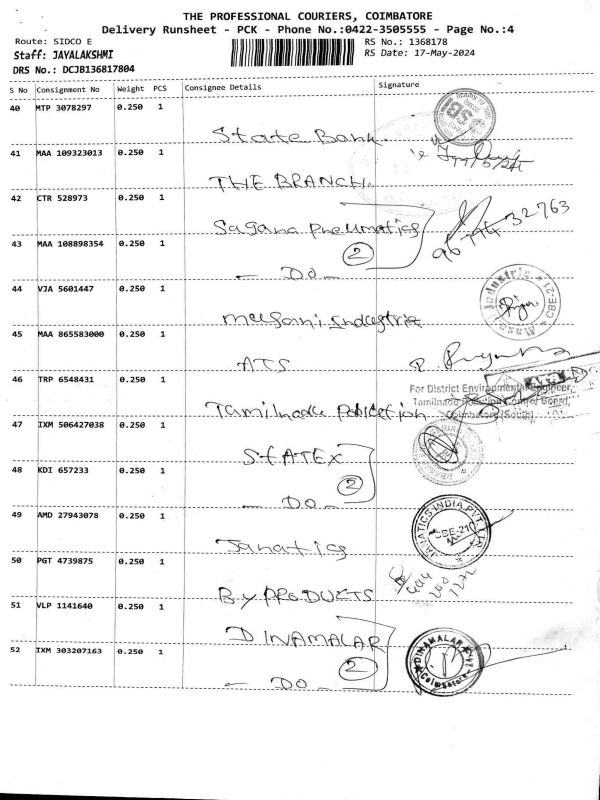 THE PROFESSIONAL COURIERS, COIMBATORE
Delivery Runsheet - PCK - Phone No.:0422-3505555 - Page No.:4
Route: SIDCO E
RS No.: 1368178
Staff: JAYALAKSHMI
RS Date: 17-May-2024
DRS No.: DCJB136817804
S No Consignment No Weight PCS Consignee Details Signature
40 MTP 3078297 0.250 1
State Bank
SBI
41 MAA 109323013 0.250 1
THE BRANCH
42 CTR 528973 0.250 1
Sagana Pneumatics
43 MAA 108898354 0.250 1
2
- DO -
44 VJA 5601447 0.250 1
Industrie
CBE-21
45 MAA 865583000 0.250 1
ATS
46 TRP 6548431 0.250 1
For District Environmental Engineer,
Tamilnadu Pollution Control Board,
Coimbatore (South)
47 IXM 506427038 0.250 1
STATEX
48 KDI 657233 0.250 1
2
- DO -
49 AMD 27943078 0.250 1
Janatics
JANATICS INDIA PVT. LTD
CBE-21
50 PGT 4739875 0.250 1
By PRODUCTS
51 VLP 1141640 0.250 1
DINAMALAR
52 IXM 303207163 0.250 1
2
- DO -
DINAMALAR
Coimbatore